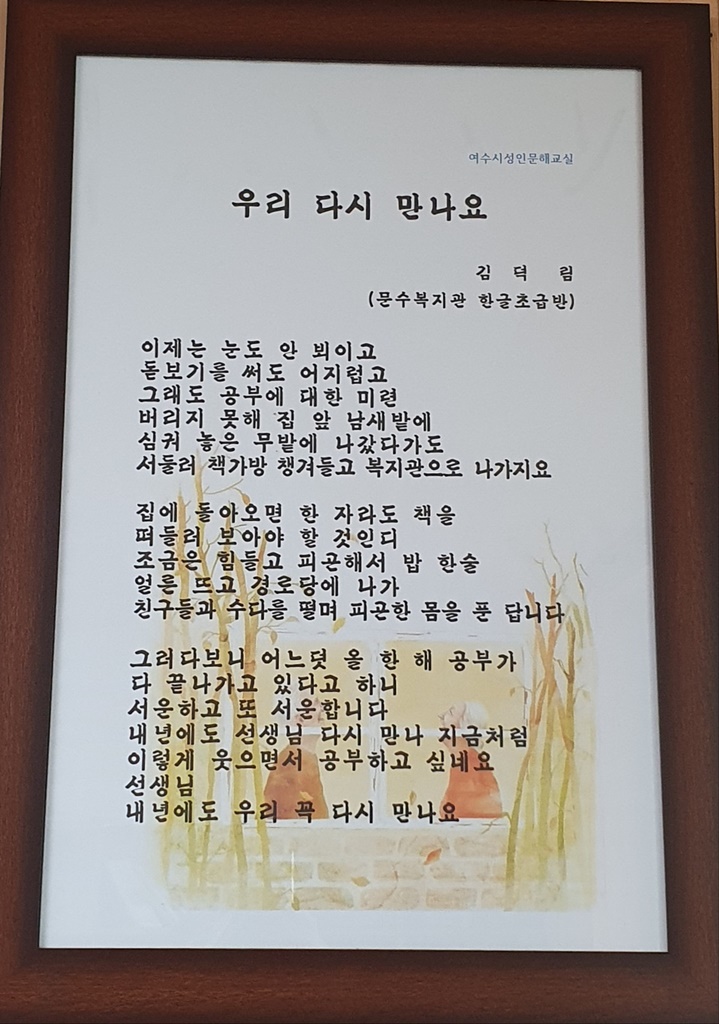 여수시성인문해교실
우리 다시 만나요
김 덕 림
(문수복지관 한글초급반)
이제는 눈도 안 뵈이고
돋보기를 써도 어지럽고
그래도 공부에 대한 미련
버리지 못해 집 앞 남새밭에
심궈 놓은 무밭에 나갔다가도
서둘러 책가방 챙겨들고 복지관으로 나가지요
집에 돌아오면 한 자라도 책을
떠들러 보아야 할 것인디
조금은 힘들고 피곤해서 밥 한술
얼른 뜨고 경로당에 나가
친구들과 수다를 떨며 피곤한 몸을 푼 답니다
그러다보니 어느덧 올 한 해 공부가
다 끝나가고 있다고 하니
서운하고 또 서운합니다
내년에도 선생님 다시 만나 지금처럼
이렇게 웃으면서 공부하고 싶네요
선생님
내년에도 우리 꼭 다시 만나요